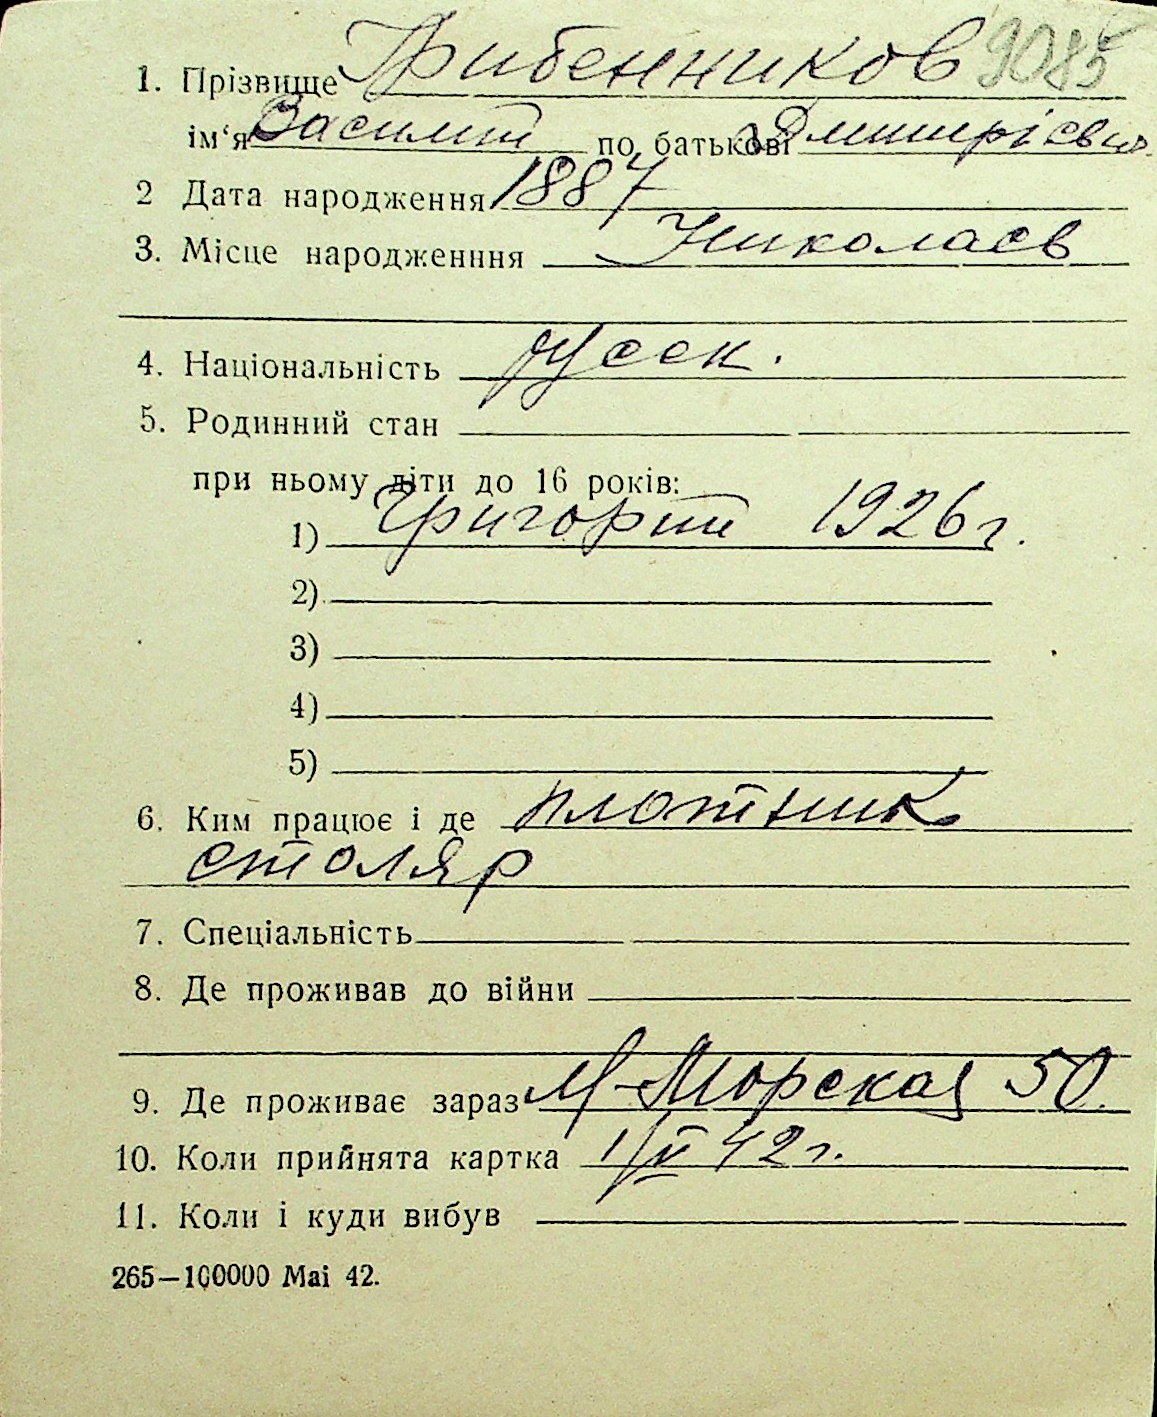 1. Прізвище Грибенников 9085
ім‘я Василий по батькові Дмитрієвич
2 Дата народження 1887
3. Місце народженння Николаєв
4. Національність русск.
5. Родинний стан
при ньому діти до 16 років:
1) Григорий 1926 г.
2)
3)
4)
5)
6. Ким працює і де плотник
столяр
7. Спеціальність
8. Де проживав до війни
9. Де проживає зараз М-Морская 50
10. Коли прийнята картка 1/V 42 г.
11. Коли і куди вибув
265—100000 Mai 42.